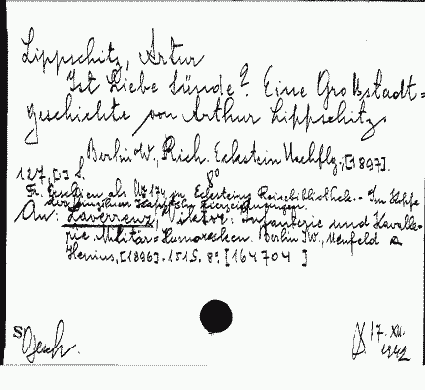 Lippschitz, Artur
Ist Liebe Sünde? Eine Großstadt=
geschichte von Arthur Lippschitz.
Berlin W., Rich. Eckstein Nachflg. [1897].
127, [1] S. 8°
Fr. Erschien als No 134 zu Ecksteins Reisebibliothek. - Im Hefte
An: Laverrenz, Viktor: Infanterie und Kavalle-
rie. Militär=Humoresken. Berlin SW., Neufeld &
Henius, [1896]. 151 S. 8°. [164704]
Gesch.
17. XII.
1942